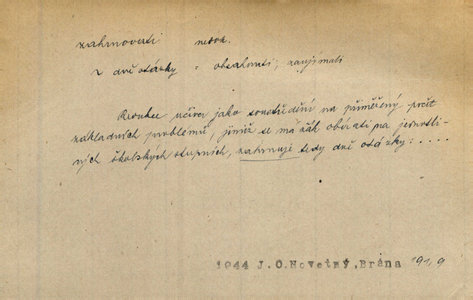 zahrnovati nedok.
2 dvě otázky = obsahovati, zaujímati
Redukce učiva jako soustředění na přiměřený počet
základních problémů, jimiž se má žák obírati na jednotli-
vých školských stupních, zahrnuje tedy dvě otázky: ....
1944 J.O.Novotný,Brána 191,9